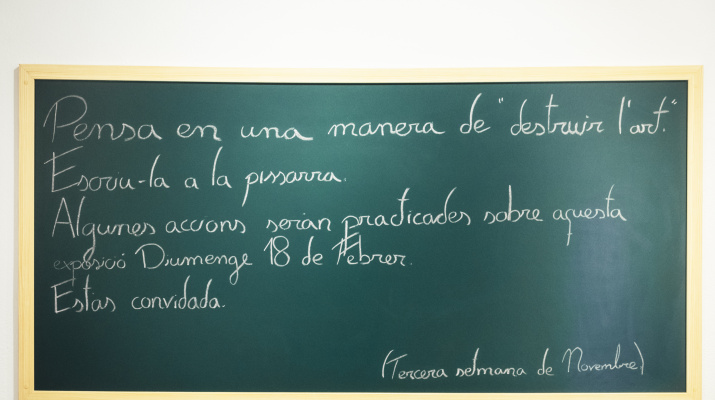 Pensa en una manera de "destruir l'art."
Escriu-la a la pissarra.
Algunes accions seran practicades sobre aquesta
exposició Diumenge 18 de Febrer.
Estas convidada.
(Tercera setmana de Novembre)